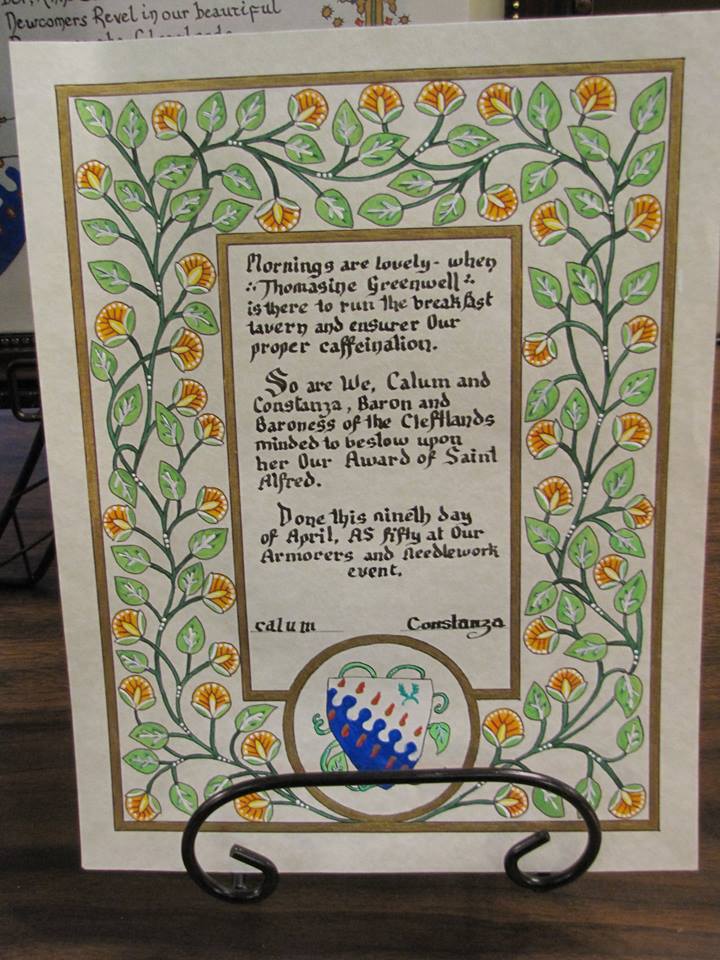 Newcomers Revel in our beautiful
Mornings are lovely - when
Thomasine Greenwell
is there to run the breakfast
tavern and ensurer Our
proper caffeination.
So are We, Calum and
Constanza, Baron and
Baroness of the Cleftlands
minded to bestow upon
her Our Award of Saint
Alfred.
Done this nineth day
of April, AS fifty at Our
Armorers and Needlework
event.
calum Constanza